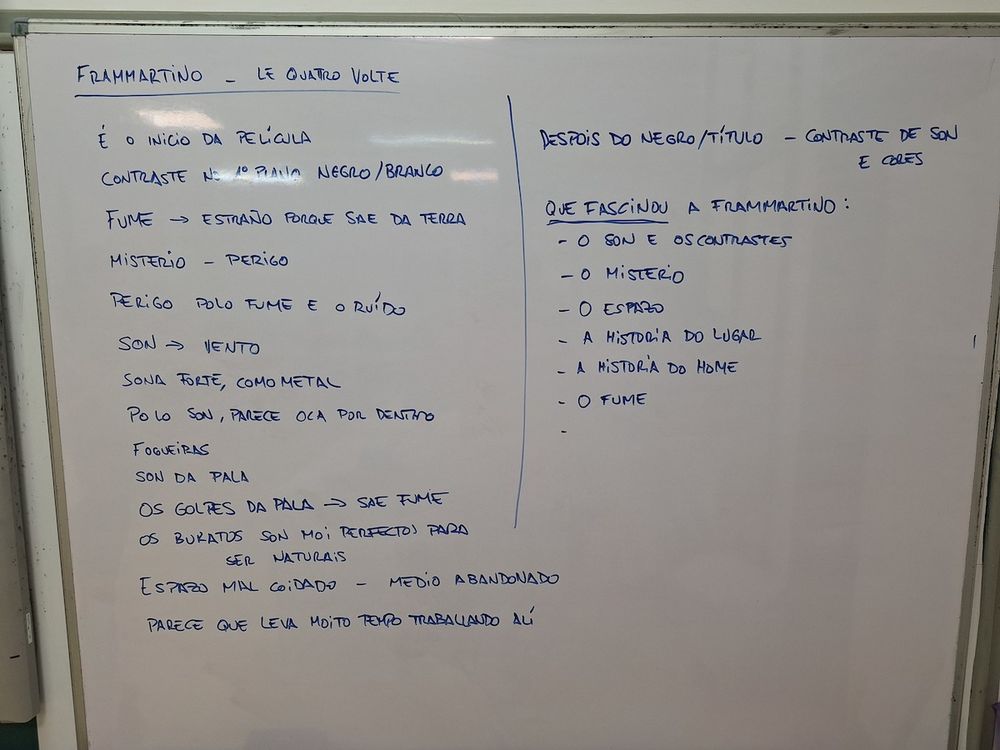 FRAMMARTINO - LE QUATRO VOLTE
É O INICIO DA PELÍCULA
CONTRASTE NO 1º PLANO NEGRO/BRANCO
FUME → ESTRAÑO PORQUE SAE DA TERRA
MISTERIO - PERIGO
PERIGO POLO FUME E O RUÍDO
SON → VENTO
SONA FORTE, COMO METAL
POLO SON, PARECE OCA POR DENTRO
FOGUEIRAS
SON DA PALA
OS GOLPES DA PALA → SAE FUME
OS BURATOS SON MOI PERFECTOS PARA
SER NATURAIS
ESPAZO MAL COIDADO - MEDIO ABANDONADO
PARECE QUE LEVA MOITO TEMPO TRABALLANDO ALÍ
DESPOIS DO NEGRO/TÍTULO - CONTRASTE DE SON
E CORES
QUE FASCINOU A FRAMMARTINO:
- O SON E OS CONTRASTES
- O MISTERIO
- O ESPAZO
- A HISTORIA DO LUGAR
- A HISTORIA DO HOME
- O FUME
-